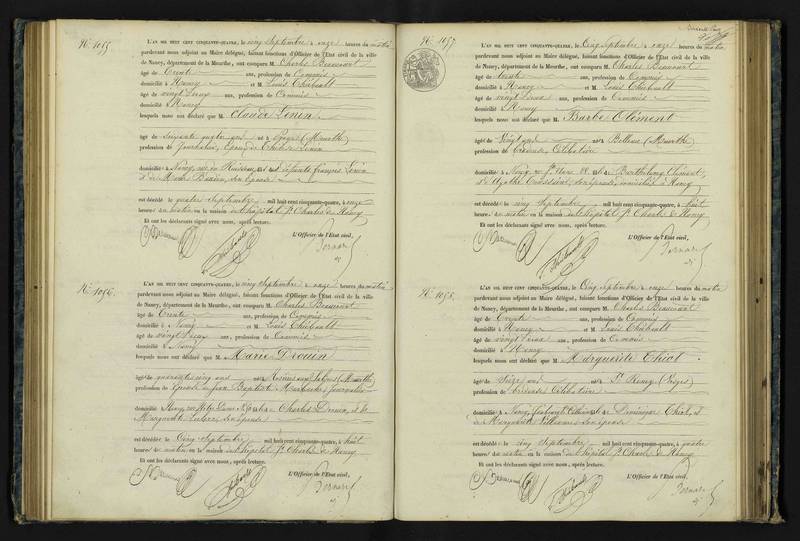 N.° 1055.
L'AN MIL HUIT CENT CINQUANTE-QUATRE, le cinq Septembre à onze heures du matin
pardevant nous adjoint au Maire délégué, faisant fonctions d'Officier de l'Etat civil de la ville
de Nancy, département de la Meurthe, ont comparu M. Charles Beaucourt
âgé de trente ans, profession de Commis
domicilié à Nancy et M. Louis Thiébault
âgé de vingt deux ans, profession de Commis
domicilié à Nancy
lesquels nous ont déclaré que M. Claude Lenin
âgé de soixante quatre ans né à (Meurthe)
profession de Journalier, Epoux de Lenin
domicilié à Nancy, rue de fils de défunts françois Lenin
et de Marie son épouse
est décédé le quatre Septembre mil huit cent cinquante-quatre, à onze
heures du matin en la maison de l'hôpital St. Charles de Nancy
Et ont les déclarants signé avec nous, après lecture.
L'Officier de l'Etat civil,
N.° 1056.
L'AN MIL HUIT CENT CINQUANTE-QUATRE, le cinq Septembre à onze heures du matin
pardevant nous adjoint au Maire délégué, faisant fonctions d'Officier de l'Etat civil de la ville
de Nancy, département de la Meurthe, ont comparu M. Charles Beaucourt
âgé de trente ans, profession de Commis
domicilié à Nancy et M. Louis Thiébault
âgé de vingt deux ans, profession de Commis
domicilié à Nancy
lesquels nous ont déclaré que M. Marie Drouin
âgé de quarante cinq ans née à (Meurthe)
profession de Epouse de Jean Baptiste
domicilié à Nancy, rue fille de Charles Drouin, et de
Marguerite son épouse
est décédée le Cinq Septembre mil huit cent cinquante-quatre, à huit
heures du matin en la maison de l'hôpital St. Charles de Nancy
Et ont les déclarants signé avec nous, après lecture.
L'Officier de l'Etat civil,
N.° 1057.
L'AN MIL HUIT CENT CINQUANTE-QUATRE, le Cinq Septembre à onze heures du matin
pardevant nous adjoint au Maire délégué, faisant fonctions d'Officier de l'Etat civil de la ville
de Nancy, département de la Meurthe, ont comparu M. Charles Beaucourt
âgé de trente ans, profession de Commis
domicilié à Nancy et M. Louis Thiébault
âgé de vingt deux ans, profession de Commis
domicilié à Nancy
lesquels nous ont déclaré que M. Barbe Clément
âgée de Vingt ans née à Belleau (Meurthe)
profession de Célibataire
domiciliée à Nancy, rue fille de Barthélemy Clément,
et d'Agathe son épouse, domiciliés à Nancy
est décédée le cinq Septembre mil huit cent cinquante-quatre, à huit
heures du matin en la maison de l'hôpital St. Charles de Nancy
Et ont les déclarants signé avec nous, après lecture.
L'Officier de l'Etat civil,
N.° 1058.
L'AN MIL HUIT CENT CINQUANTE-QUATRE, le Cinq Septembre à onze heures du matin
pardevant nous adjoint au Maire délégué, faisant fonctions d'Officier de l'Etat civil de la ville
de Nancy, département de la Meurthe, ont comparu M. Charles Beaucourt
âgé de Trente ans, profession de Commis
domicilié à Nancy et M. Louis Thiébault
âgé de vingt deux ans, profession de Commis
domicilié à Nancy
lesquels nous ont déclaré que M. Marguerite Thiot
âgée de Seize ans née à St. Remy (Vosges)
profession de Célibataire
domiciliée à Nancy, faubourg fille de Dominique Thiot, et
de Marguerite son épouse
est décédée le cinq Septembre mil huit cent cinquante-quatre, à quatre
heures du matin en la maison de l'hôpital St. Charles de Nancy
Et ont les déclarants signé avec nous, après lecture.
L'Officier de l'Etat civil,